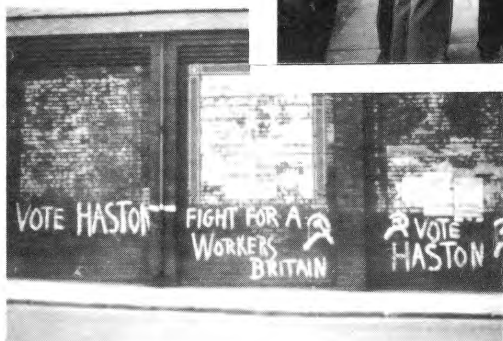 VOTE HASTON
FIGHT FOR A
WORKERS
BRITAIN
VOTE
HASTON